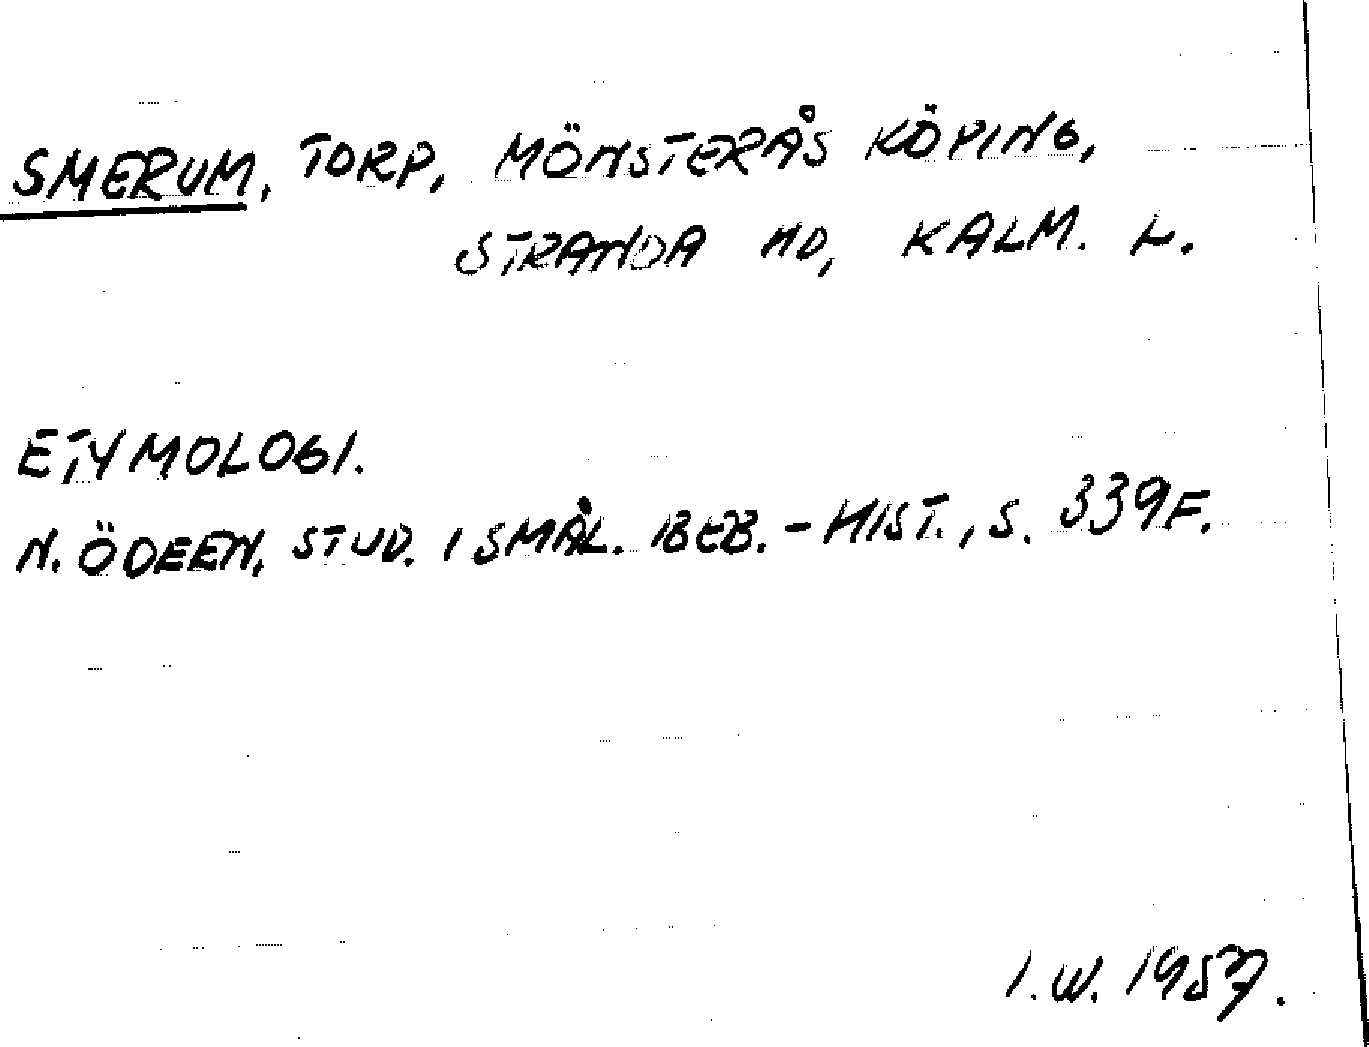 SMERUM, TORP, MÖNSTERÅS KÖPING,
STRANDA HD, KALM. L.
ETYMOLOGI.
N. ÖDEEN, STUD. I SMÅL. BEB.-HIST., S. 339F.
I.W. 1957.